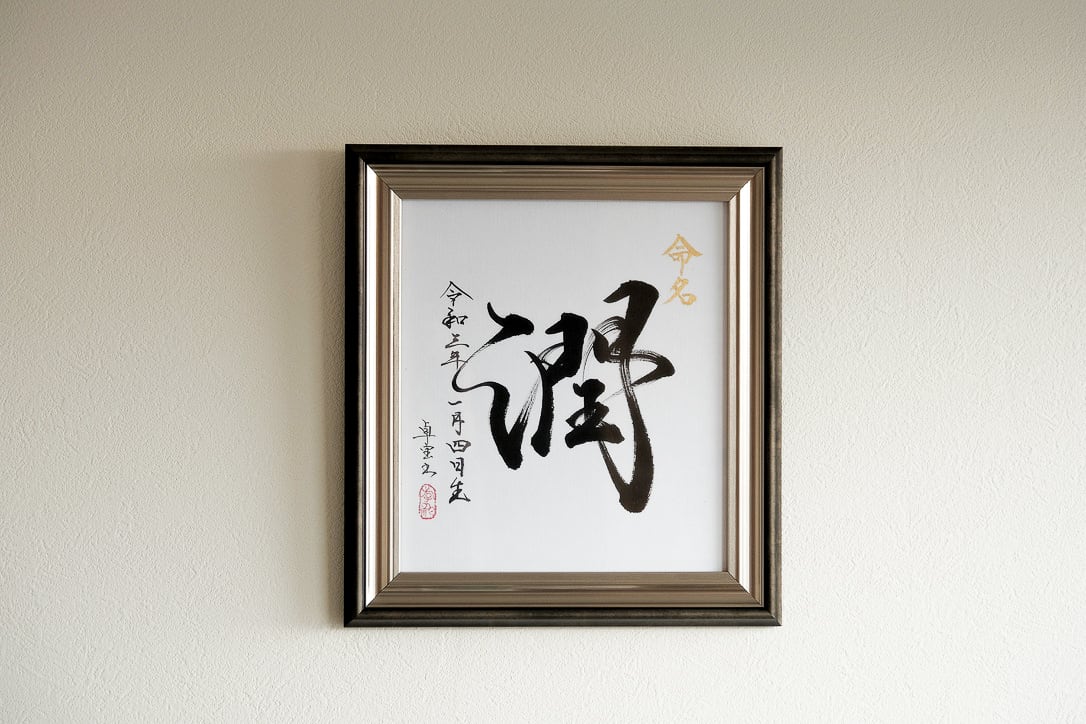 命名
潤
令和三年一月四日生